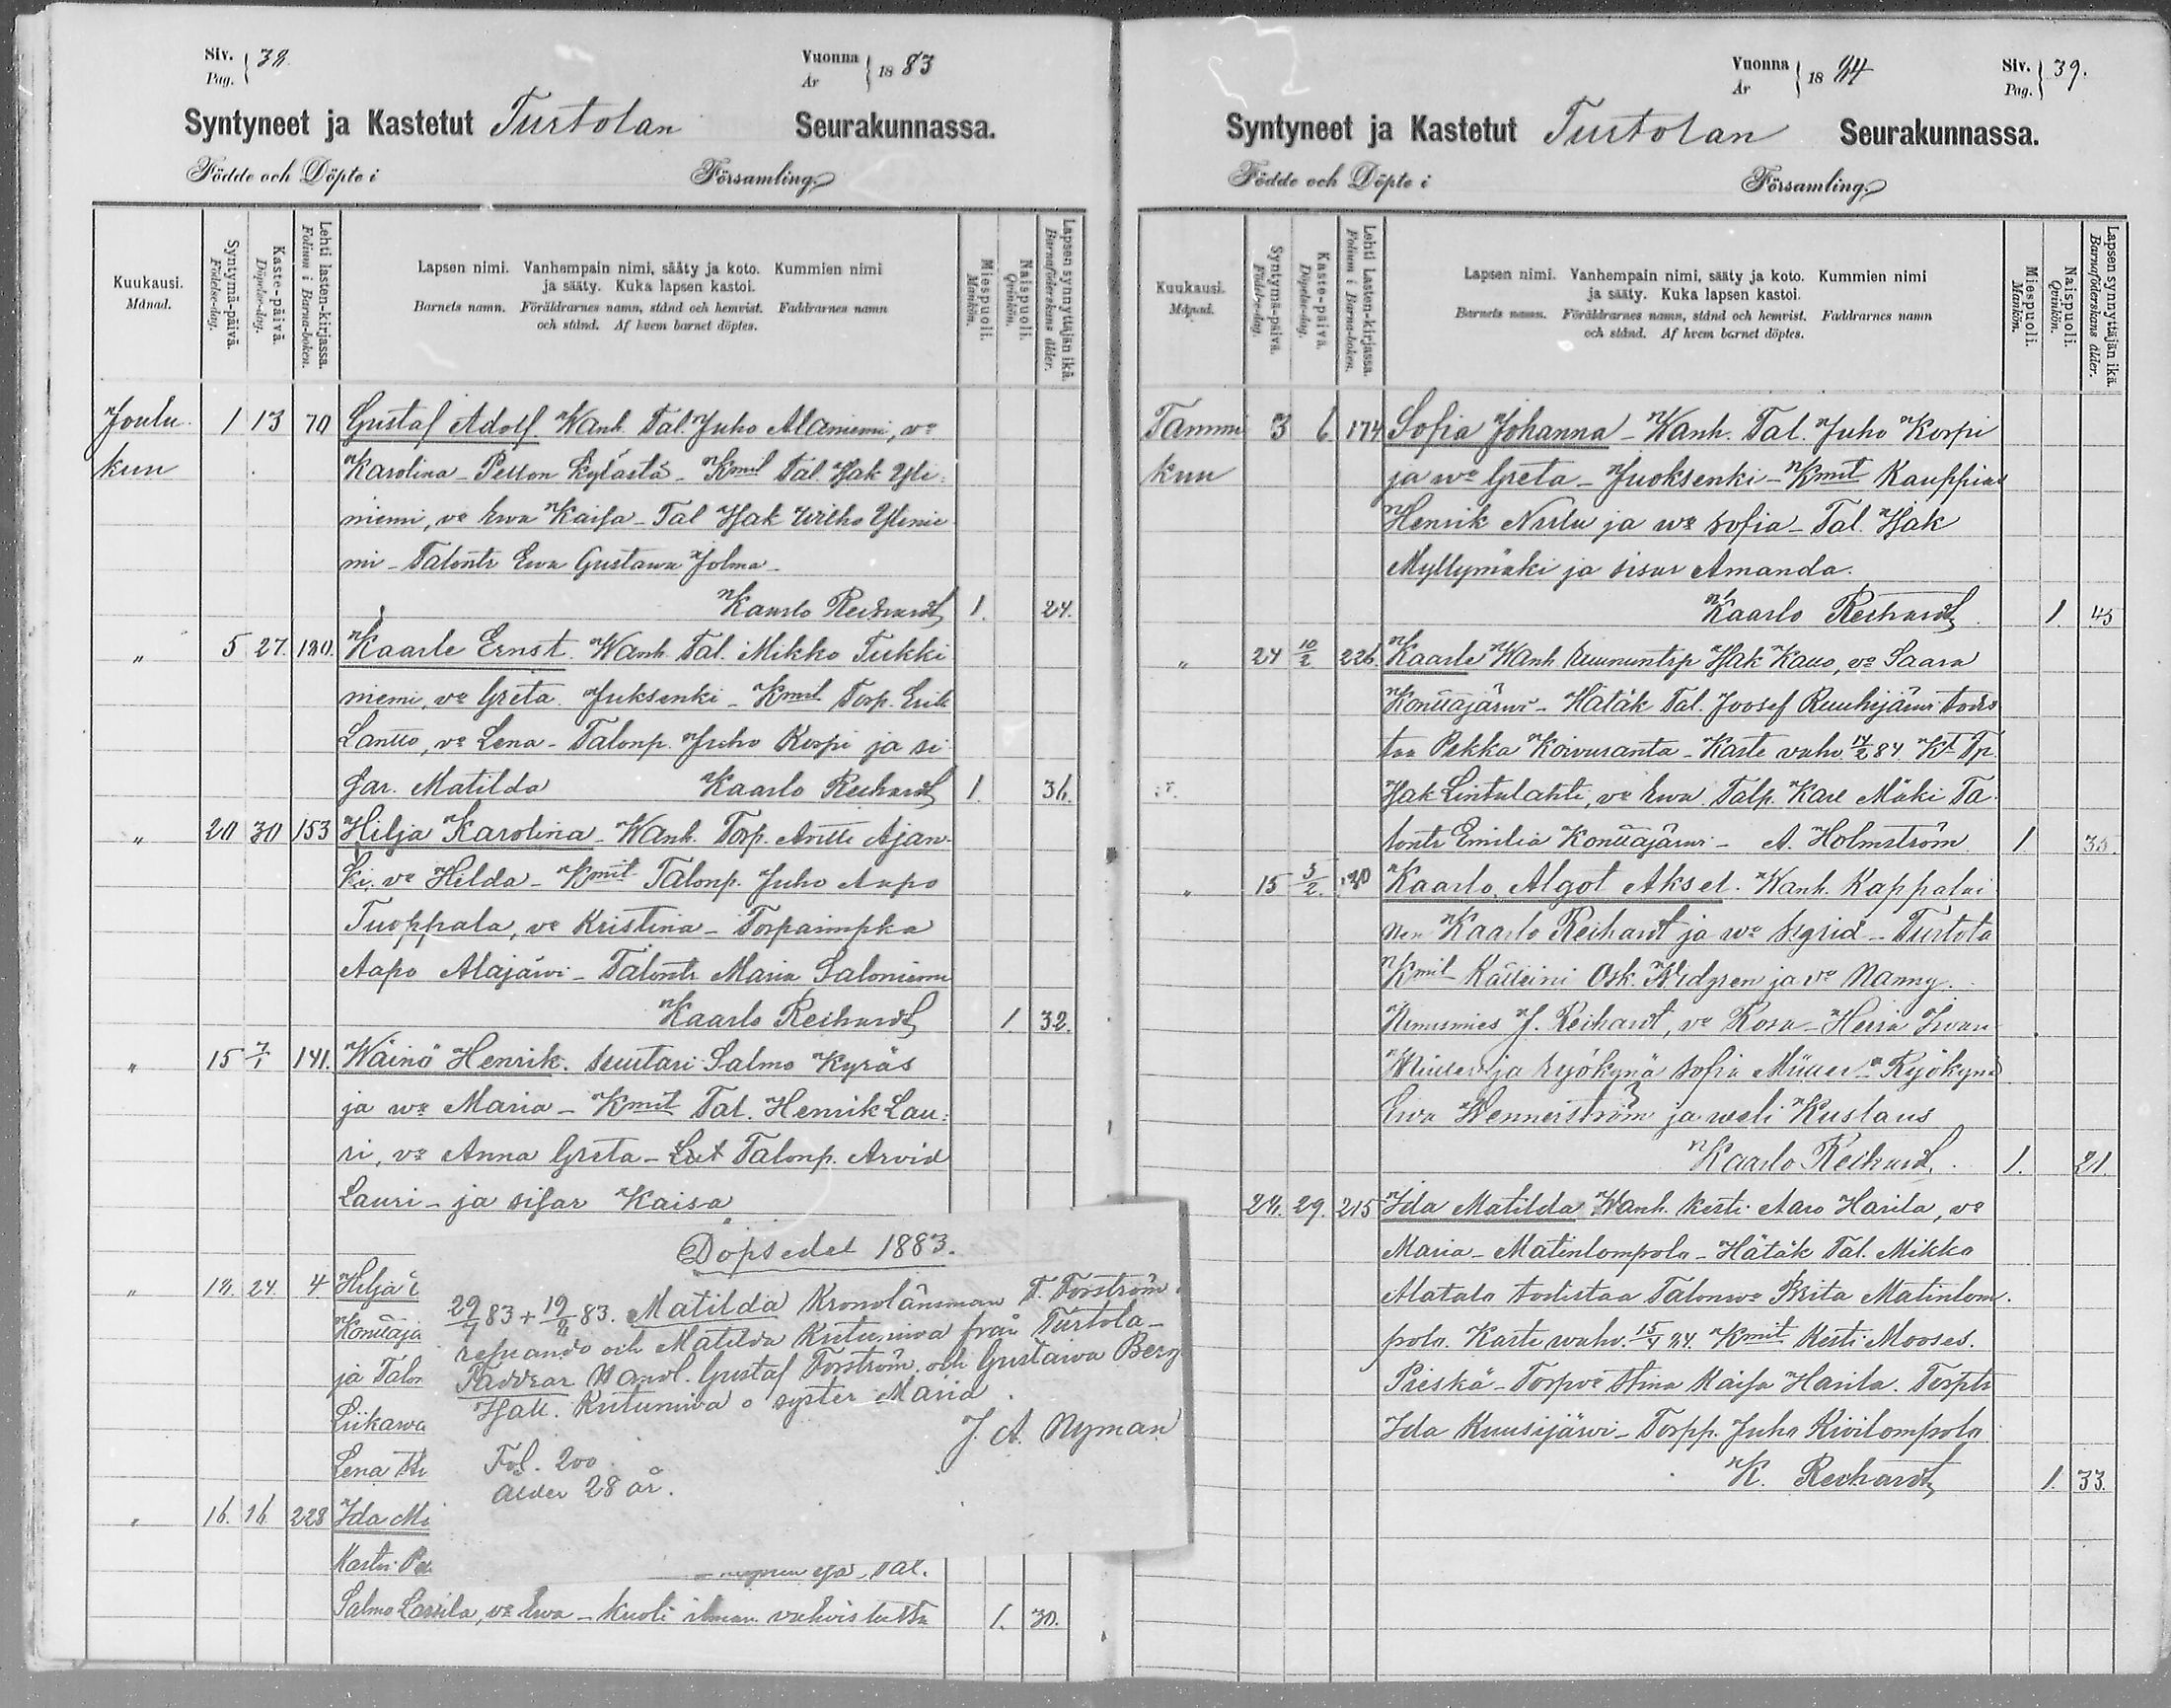 Siv. Pag. 38.
Vuonna År 1883
Syntyneet ja Kastetut Turtolan Seurakunnassa.
Födde och Döpte i Församling.
Kuukausi. Månad.
Syntymä-päivä. Födelse-dag.
Kaste-päivä. Döpelse-dag.
Lehti lasten-kirjassa. Folium i Barna-boken.
Lapsen nimi. Vanhempain nimi, sääty ja koto. Kummien nimi
ja sääty. Kuka lapsen kastoi.
Barnets namn. Föräldrarnes namn, stånd och hemvist. Faddrarnes namn
och stånd. Af hvem barnet döptes.
Miespuoli. Mankön.
Naispuoli. Qvinkön.
Lapsen synnyttäjän ikä. Barnaföderskans ålder.
Joulu 1 13 70 Gustaf Adolf. Wanh. Tal. Juho Alaniemi, vo
kuu Karolina - Pellon kylästä - Kmit Tal. Isak Yli
niemi, vo Ewa Kaisa - Tal Isak Wilho Ylinie
mi - Talontr Ewa Gustawa Jolma -
Kaarlo Rechardt 1. 24.
" 5 27. 180. Kaarle Ernst. Wanh. Tal. Mikko Tukki
niemi, vo Greta. Juksenki - Kmit Torp. Erik
Lantto, vo Lena - Talonp. Juho Korpi ja si
sar. Matilda Kaarlo Rechardt 1. 36.
" 20 30 153 Hilja Karolina - Wanh. Torp. Antti Ajan
ki, vo Hilda - Kmit Talonp. Juho Aapo
Tuoppala, vo Kristina - Torpainpka
Aapo Alajärvi - Talontr Maria Saloniemi
Kaarlo Rechardt 1. 32.
" 15 7/1 141. Wäinö Henrik. Suutari Salmo Kyräs
ja wo Maria - Kmit Tal. Henrik Lau:
ri, vo Anna Greta - Talonp. Arvid
Lauri - ja sisar Kaisa
Döpsedel 1883.
" 18. 24. 4 Hilja
29/7 83 + 19/8 83. Matilda Kronolänsman F. Forström
Konttäjä
och Matilda Kutuniva från Turtola -
ja Talon
Faddrar Handl. Gustaf Forström och Gustawa Berg
Liikawa
Isak. Kutuniva o syster Maria.
J. A. Nyman
Lena
Fol. 200.
ålder 28 år.
" 16. 16 228 Ida
Tal.
Salmo Lassila, vo Ewa - kuoli ilman vahvistutta 1. 30.
Vuonna År 1884
Siv. Pag. 39.
Syntyneet ja Kastetut Turtolan Seurakunnassa.
Födde och Döpte i Församling.
Kuukausi. Månad.
Syntymä-päivä. Födelse-dag.
Kaste-päivä. Döpelse-dag.
Lehti lasten-kirjassa. Folium i Barna-boken.
Lapsen nimi. Vanhempain nimi, sääty ja koto. Kummien nimi
ja sääty. Kuka lapsen kastoi.
Barnets namn. Föräldrarnes namn, stånd och hemvist. Faddrarnes namn
och stånd. Af hvem barnet döptes.
Miespuoli. Mankön.
Naispuoli. Qvinkön.
Lapsen synnyttäjän ikä. Barnaföderskans ålder.
Tammi 3 6 174 Sofia Johanna - Wanh. Tal. Juho Korpi
kuu ja wo Greta - Juoksenki - Kmit Kauppias
Henrik Nulu ja wo Sofia - Tal. Isak
Myllymäki ja sisar Amanda.
Kaarlo Rechardt 1. 45
" 24 10/2 226. Kaarle Wanh Isak Kallo, vo Saara
Konttäjärwi - Hätäk Tal. Joosef Ruuhijärwi todis
taa Pekka Koivuranta - Kaste vahv. 14/2 84 Kt Tp.
Isak Lintulahti, vo Ewa. Talp. Karl Mäki Ta
lontr Emilia Konttäjärwi - A. Holmström 1 35.
" 15 5/2. 180 Kaarlo Algot Aksel. Wanh. Kappalai
nen Kaarlo Rechardt ja wo Sigrid - Turtola
Kmit Osk. Widgren ja vo Nanny.
Nimismies J. Rechardt, vo Rosa - Herra Iwan
Müller ja ryökynä Sofia Müller - Ryökynä
Ewa Wennerström ja weli Kustaus
Kaarlo Rechardt. 1. 21.
28. 29. 215 Ida Matilda Wanh. Kesti Aaro Harila, vo
Maria - Matinlompolo - Hätäk Tal. Mikko
Alatalo todistaa Talonwo Brita Matinlom
polo. Kaste wahv. 15/4 84. Kmit Kesti Mooses.
Pieskä - Torpvo Stina Kaisa Harila. Torptr
Ida Kuusijärwi - Torpp. Juho Kivilompolo
K. Rechardt 1. 33.